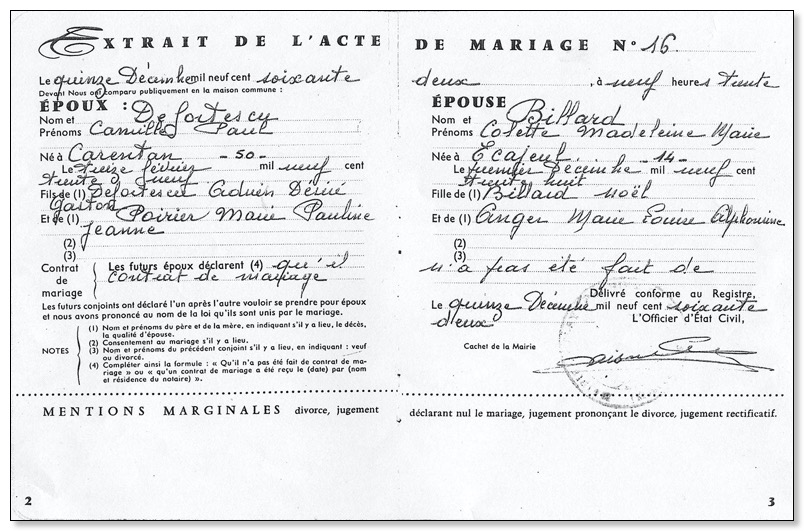 EXTRAIT DE L'ACTE DE MARIAGE N° 16
Le quinze Décembre mil neuf cent soixante deux, à neuf heures trente
Devant Nous ont comparu publiquement en la maison commune :
ÉPOUX :
Nom et Prénoms Defortescu Camille Paul
Né à Carentan - 50 -
Le treize février mil neuf cent
trente neuf
Fils de (1) Defortescu Désiré
Gaston
Et de (1) Poirier Marie Pauline
Jeanne
(2)
(3)
Contrat de mariage
Les futurs époux déclarent (4) qu'il n'a pas été fait de
contrat de mariage
Les futurs conjoints ont déclaré l'un après l'autre vouloir se prendre pour époux
et nous avons prononcé au nom de la loi qu'ils sont unis par le mariage.
NOTES
(1) Nom et prénoms du père et de la mère, en indiquant s'il y a lieu, le décès,
la qualité d'épouse.
(2) Consentement au mariage s'il y a lieu.
(3) Nom et prénoms du précédent conjoint s'il y a lieu en indiquant : veuf
ou divorcé.
(4) Compléter ainsi la formule : « Qu'il n'a pas été fait de contrat de ma-
riage » ou « qu'un contrat de mariage a été reçu le (date) par (nom
et résidence du notaire) ».
ÉPOUSE
Nom et Prénoms Billard
Colette Madeleine Marie
Née à Ecajeul - 14 -
Le premier Décembre mil neuf cent
trente huit
Fille de (1) Billard Noël
Et de (1) Anger Marie Louise Alphonsine
(2)
(3)
Délivré conforme au Registre,
Le quinze Décembre mil neuf cent soixante
deux
L'Officier d'État Civil,
Cachet de la Mairie
MENTIONS MARGINALES divorce, jugement déclarant nul le mariage, jugement prononçant le divorce, jugement rectificatif.
2
3